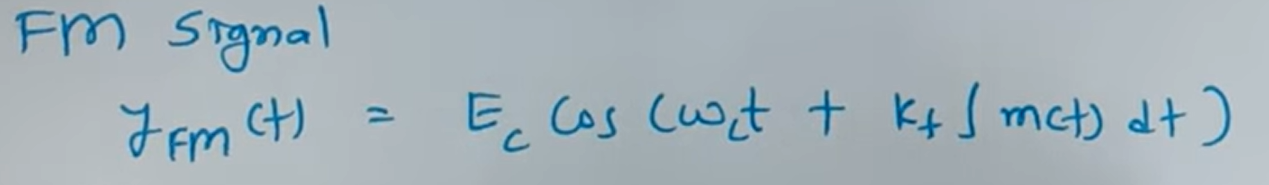 FM Signal
y_FM(t) = E_c Cos (ω_c t + K_f ∫ m(t) dt)